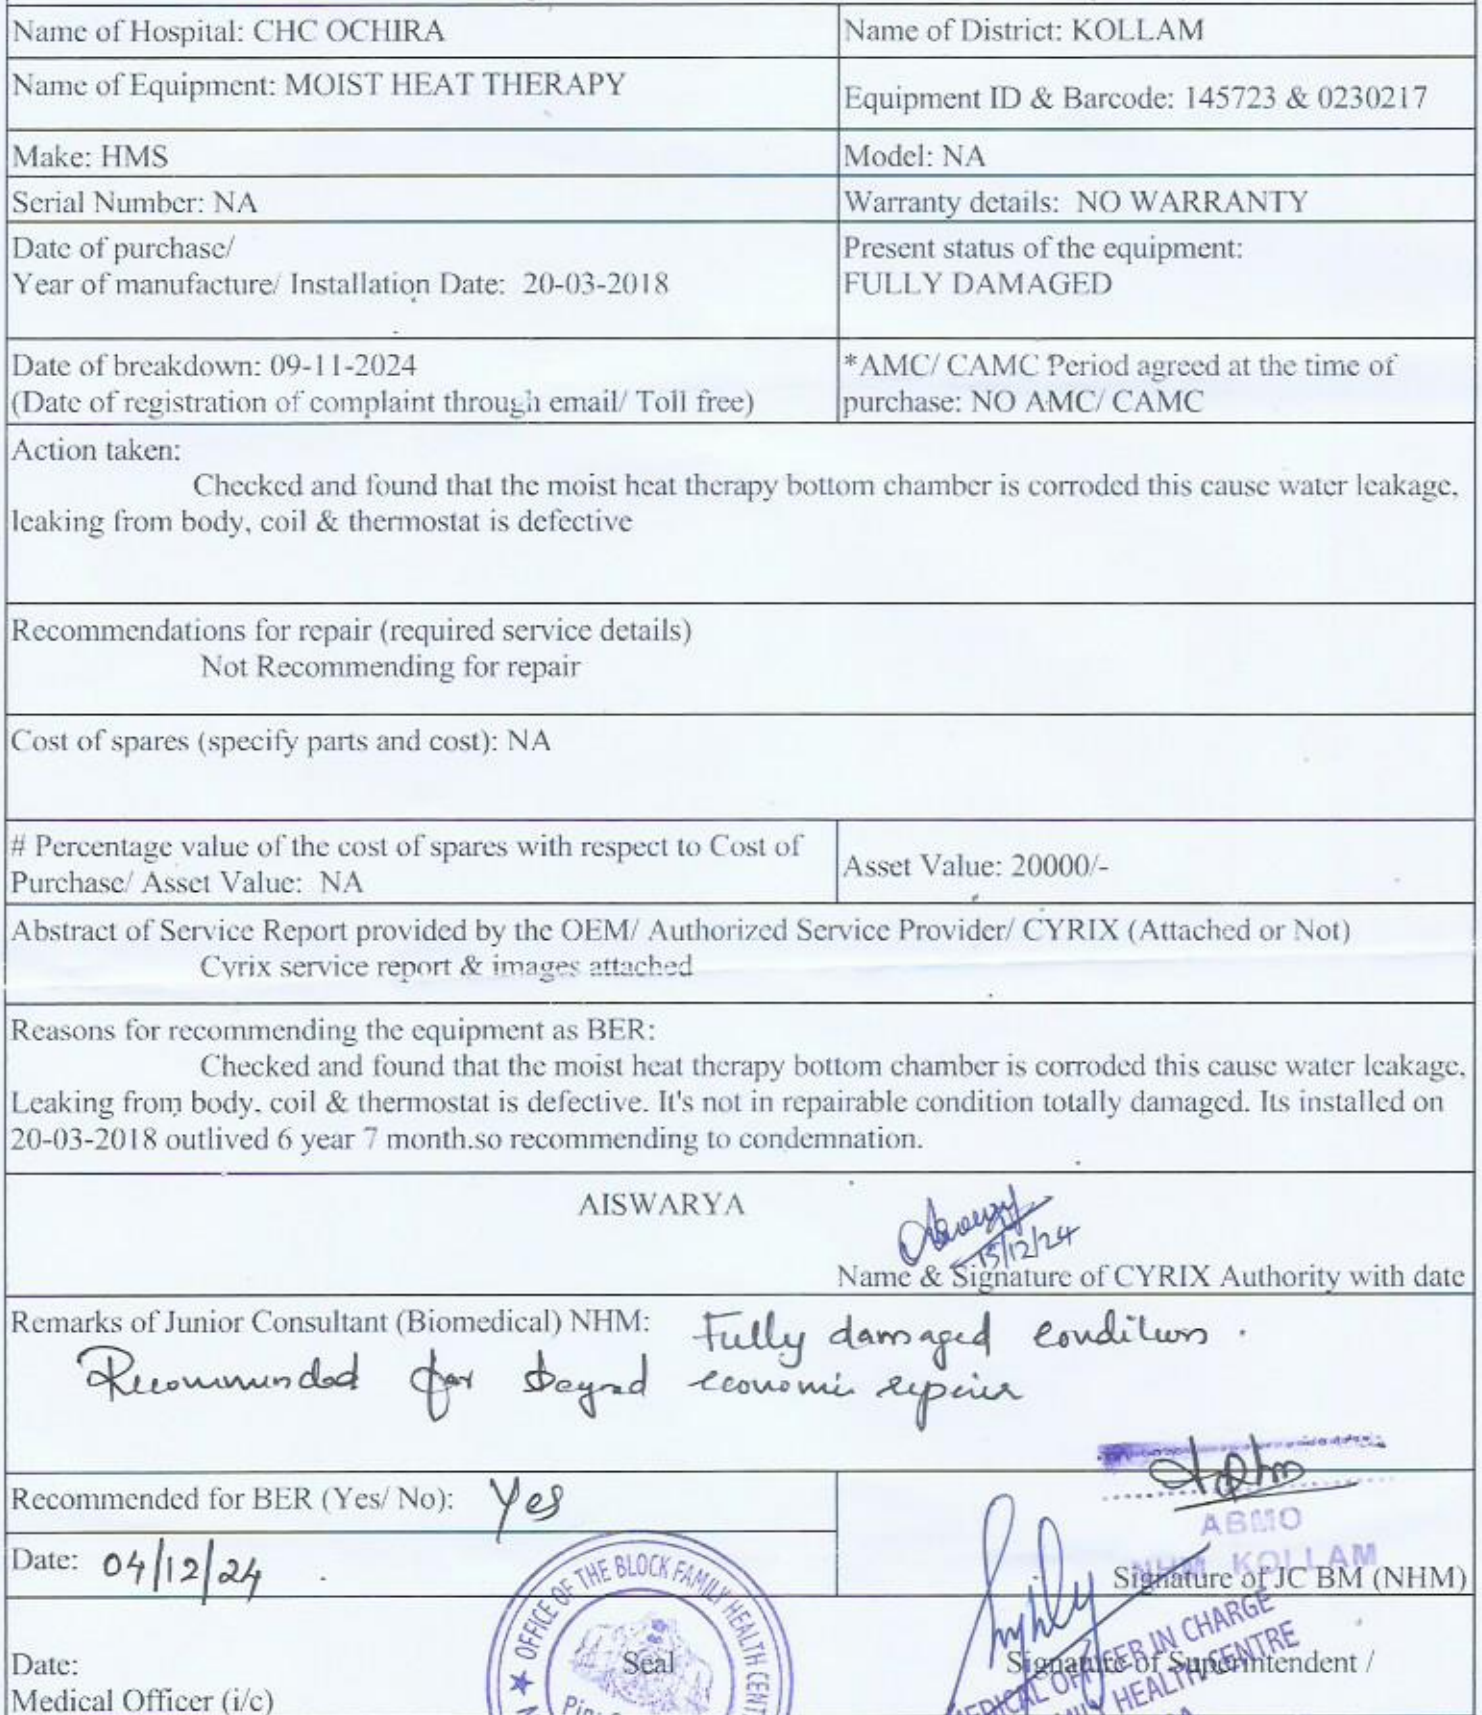 Name of Hospital: CHC OCHIRA
Name of District: KOLLAM
Name of Equipment: MOIST HEAT THERAPY
Equipment ID & Barcode: 145723 & 0230217
Make: HMS
Model: NA
Serial Number: NA
Warranty details: NO WARRANTY
Date of purchase/
Year of manufacture/ Installation Date: 20-03-2018
Present status of the equipment:
FULLY DAMAGED
Date of breakdown: 09-11-2024
(Date of registration of complaint through email/ Toll free)
*AMC/ CAMC Period agreed at the time of
purchase: NO AMC/ CAMC
Action taken:
Checked and found that the moist heat therapy bottom chamber is corroded this cause water leakage,
leaking from body, coil & thermostat is defective
Recommendations for repair (required service details)
Not Recommending for repair
Cost of spares (specify parts and cost): NA
# Percentage value of the cost of spares with respect to Cost of
Purchase/ Asset Value: NA
Asset Value: 20000/-
Abstract of Service Report provided by the OEM/ Authorized Service Provider/ CYRIX (Attached or Not)
Cyrix service report & images attached
Reasons for recommending the equipment as BER:
Checked and found that the moist heat therapy bottom chamber is corroded this cause water leakage,
Leaking from body, coil & thermostat is defective. It's not in repairable condition totally damaged. Its installed on
20-03-2018 outlived 6 year 7 month.so recommending to condemnation.
AISWARYA
15/12/24
Name & Signature of CYRIX Authority with date
Remarks of Junior Consultant (Biomedical) NHM: Fully damaged condition.
Recommended for beyond economic repair
Recommended for BER (Yes/ No): Yes
ABMO
NHM KOLLAM
Signature of JC BM (NHM)
Date: 04/12/24
OFFICE OF THE BLOCK FAMILY HEALTH CENT
Seal
MEDICAL OFFICER IN CHARGE
HEALTH CENTRE
Signature of Superintendent /
Date:
Medical Officer (i/c)